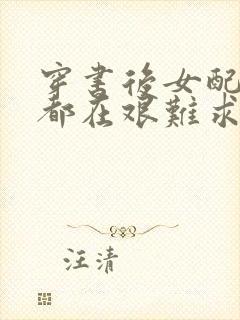 穿書後女配
都在艱難求
汪清